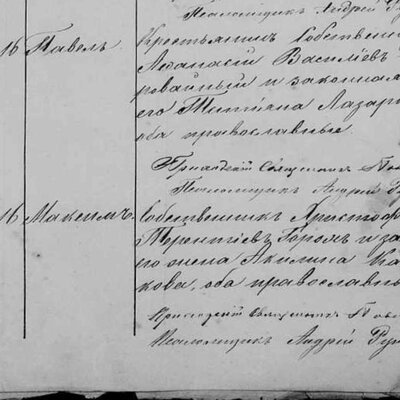 Псаломщикъ Андрей
16 Павелъ. Крестьянинъ собственн
Аѳанасій Василіевъ
и законная
его Татіана Лазар
оба православные.
Приходскій Священникъ
Псаломщикъ Андрей
16 Максимъ. Собственникъ Христофор
Терентіевъ и за
его жена Акилина
кова, оба православны
Приходскій Священникъ
Псаломщикъ Андрій